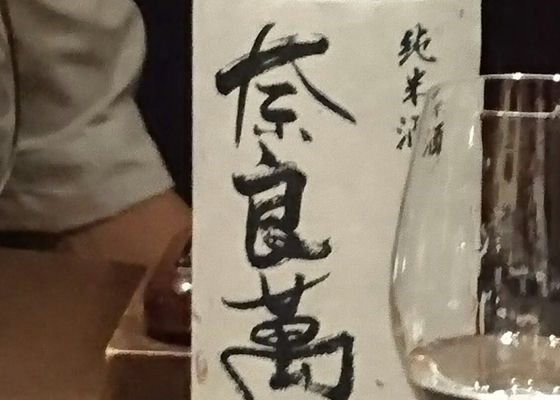 純米酒
奈良萬